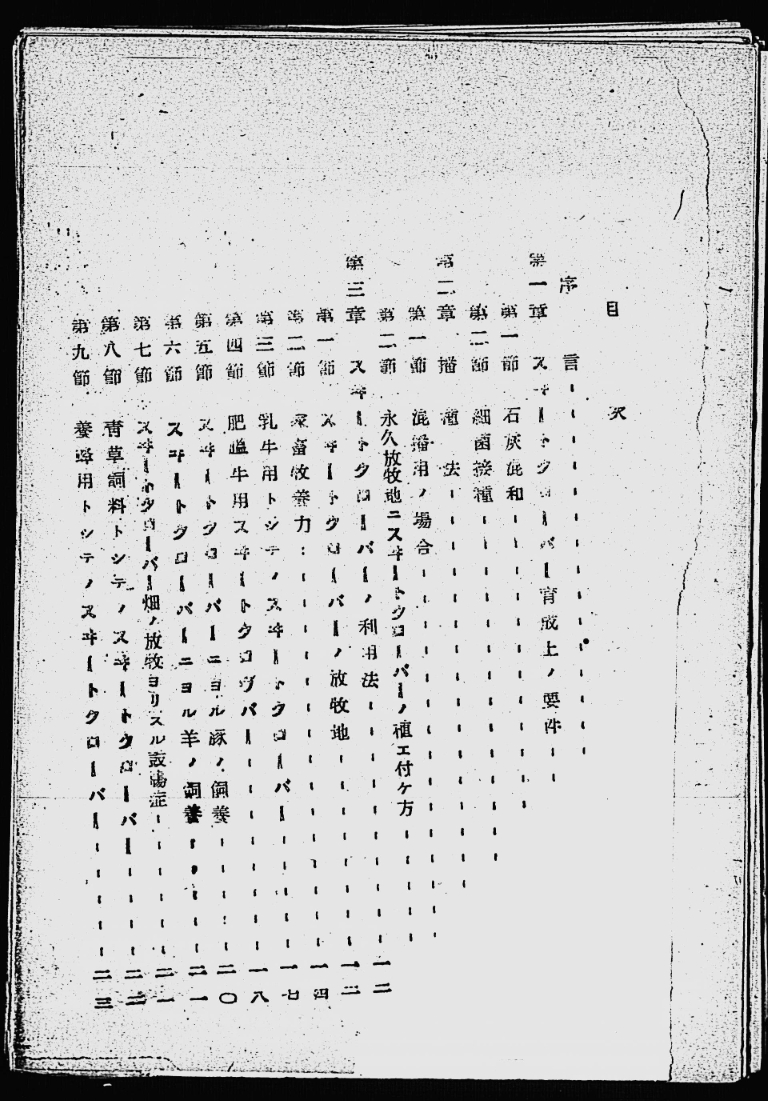 目次
序言
第一章 スヰートクローバー育成上ノ要件
第一節 石灰混和
第二節 細菌接種
第二章 播種法
第一節 混播用ノ場合
第二節 永久放牧地ニスヰートクローバーノ植エ付ケ方
第三章 スヰートクローバーノ利用法 一二
第一節 スヰートクローバーノ放牧地 一二
第二節 家畜牧養力 一四
第三節 乳牛用トシテノスヰートクローバー 一七
第四節 肥育牛用スヰートクロヴバー 一八
第五節 スヰートクローバーニヨル豚ノ飼養 二〇
第六節 スヰートクローバーニヨル羊ノ飼養 二一
第七節 スヰートクローバー畑ノ放牧ヨリスル鼓脹症 二一
第八節 青草飼料トシテノスヰートクローバー 二二
第九節 養蜂用トシテノスヰートクローバー 二三